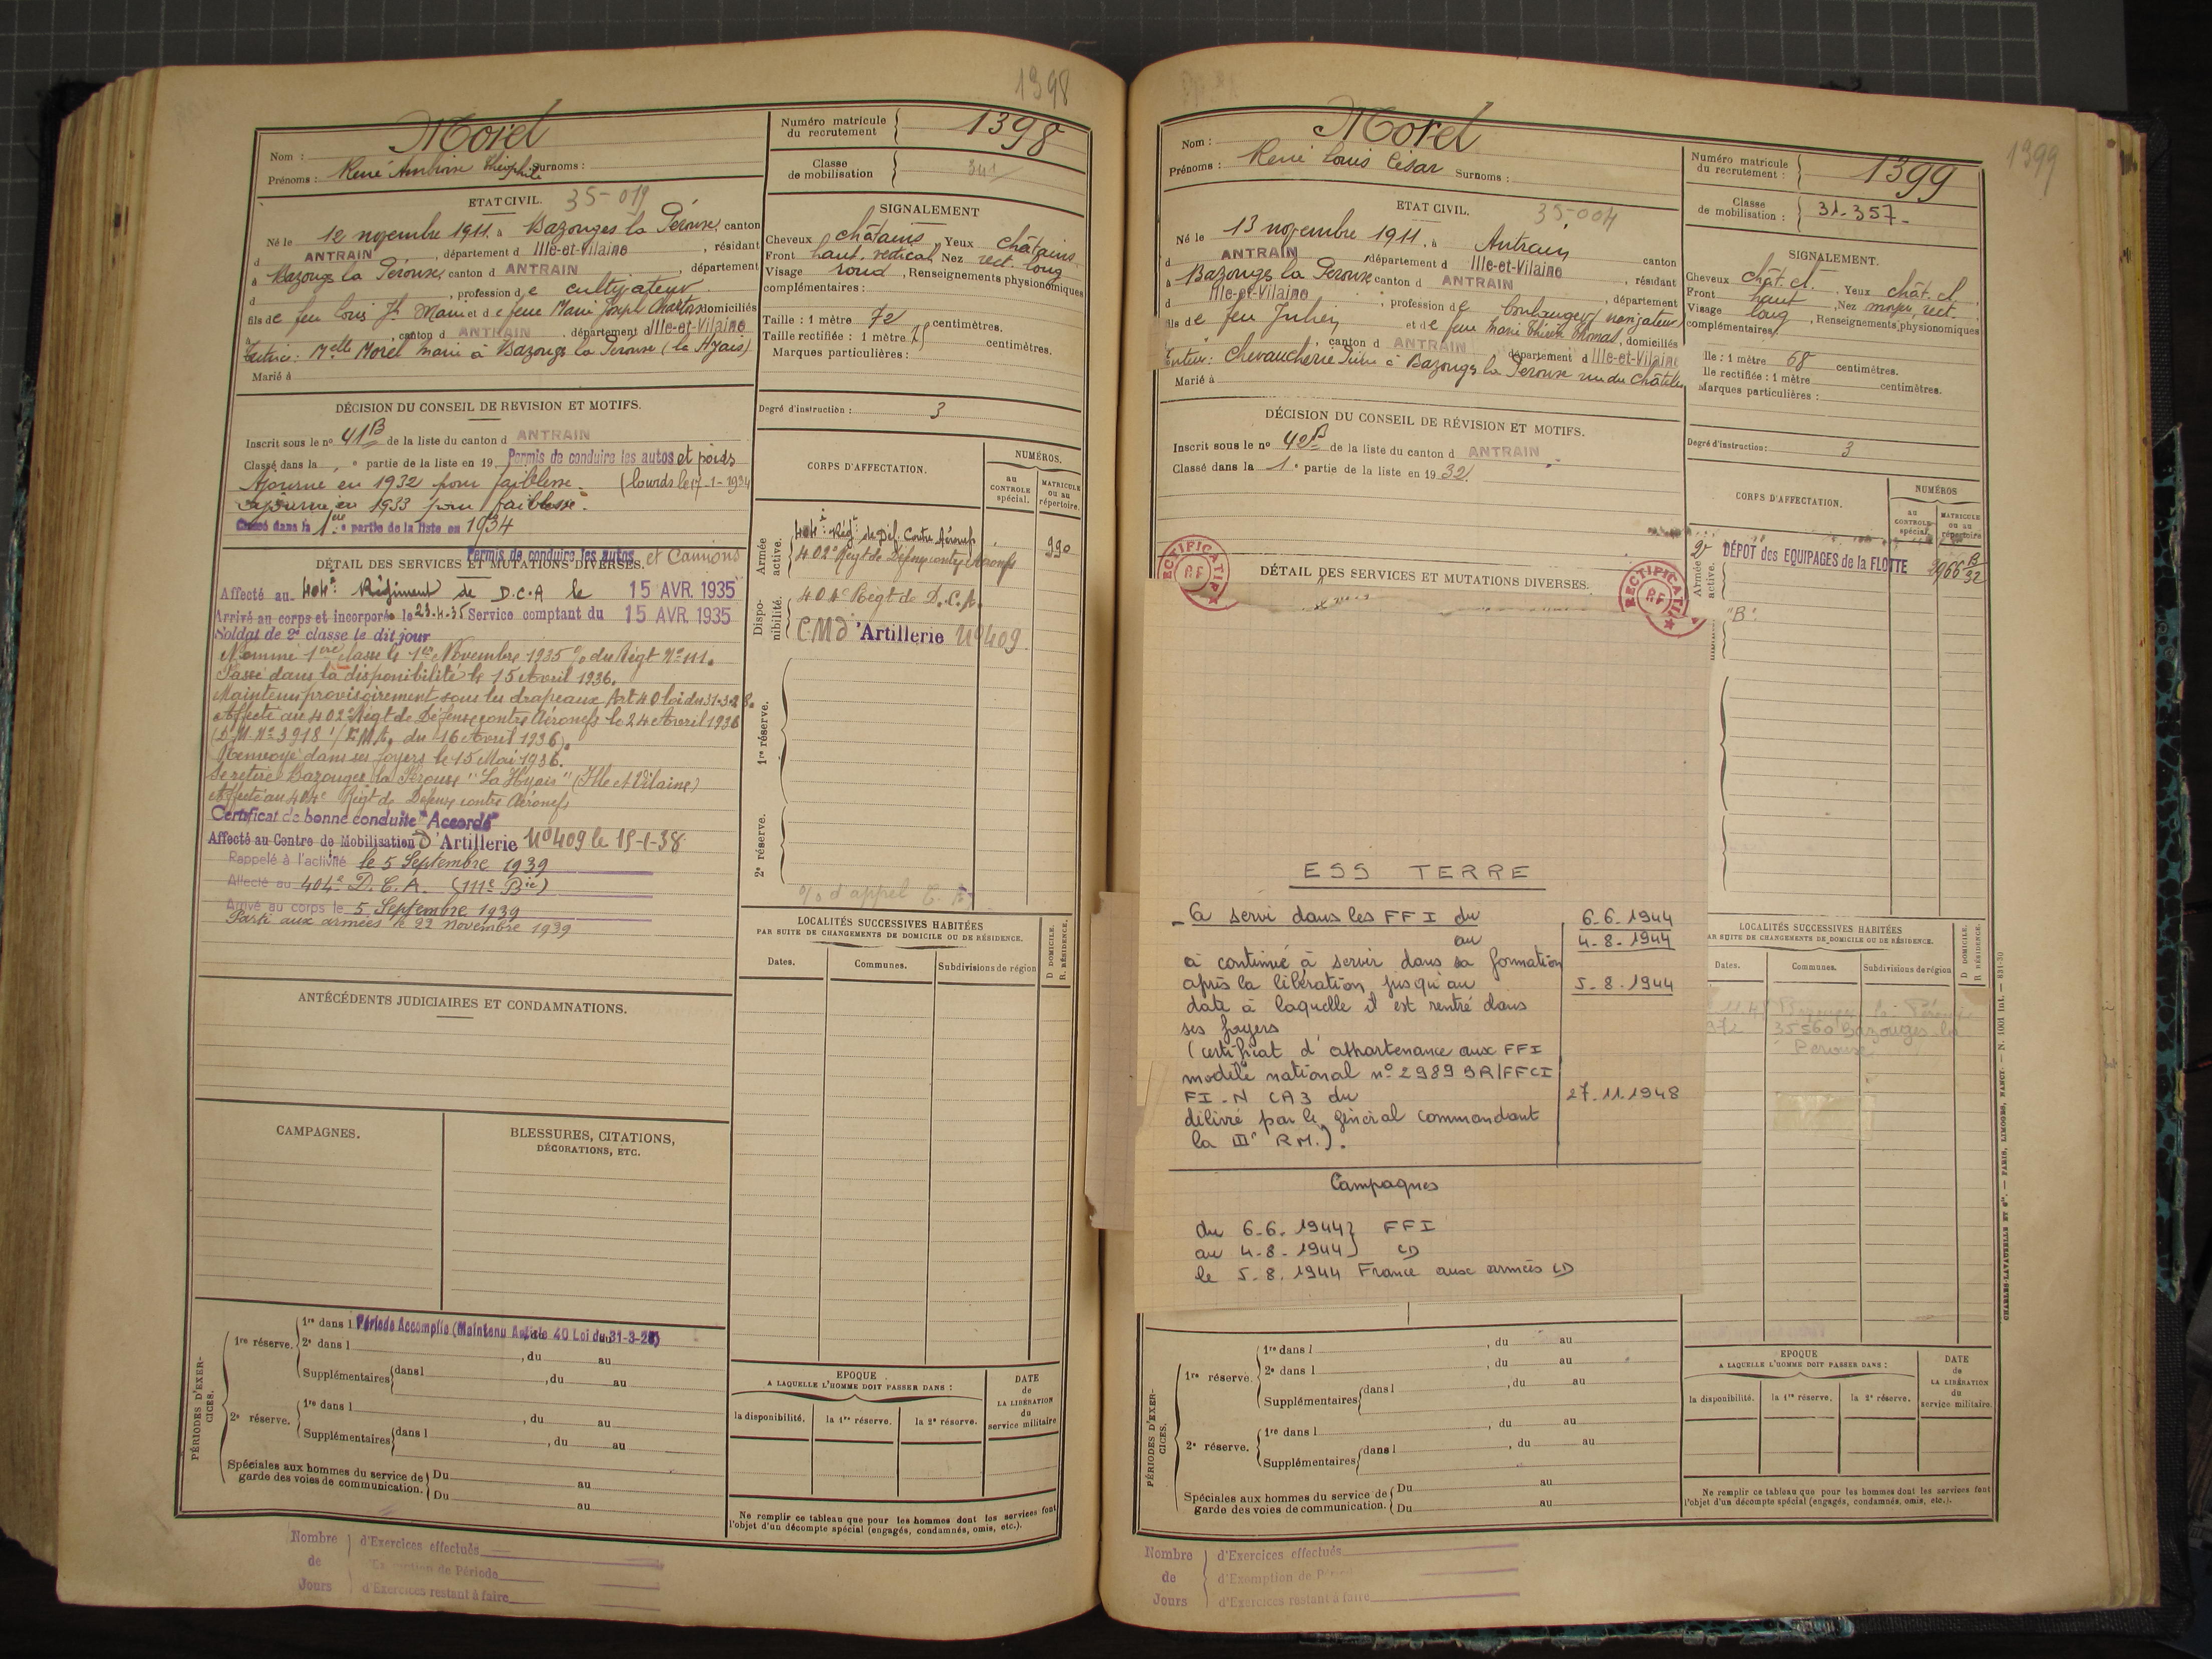 1398
Nom : Morel
Prénoms : René Ambroise Théophile Surnoms :
Numéro matricule du recrutement 1398
Classe de mobilisation 341
ETAT CIVIL. 35-019
Né le 12 novembre 1911. à Bazouges la Pérouse, canton
d ANTRAIN, département d Ille-et-Vilaine, résidant
à Bazouges la Pérouse, canton d ANTRAIN, département
d , profession de cultivateur
fils de feu Louis Jh Marie et de feue Marie Joseph domiciliés
à , canton d ANTRAIN, département d Ille-et-Vilaine
Tutrice : Melle Morel Marie à Bazouges la Pérouse
Marié à
SIGNALEMENT
Cheveux châtains, Yeux châtains
Front haut. vertical Nez rect. long
Visage rond, Renseignements physionomiques
complémentaires :
Taille : 1 mètre 72 centimètres.
Taille rectifiée : 1 mètre centimètres.
Marques particulières :
Degré d'instruction : 3
DÉCISION DU CONSEIL DE REVISION ET MOTIFS.
Inscrit sous le nº 41B de la liste du canton d ANTRAIN
Classé dans la e partie de la liste en 19 Permis de conduire les autos et poids
Ajourné en 1932 pour faiblesse. (lourds le 17-1-1934
Ajourné en 1933 pour faiblesse.
Classé dans la 1ère partie de la liste en 1934
Permis de conduire les autos et Camions
DÉTAIL DES SERVICES ET MUTATIONS DIVERSES.
Affecté au 404e Régiment de D.C.A le 15 AVR. 1935
Arrivé au corps et incorporé le 23.4.35 Service comptant du 15 AVR. 1935
Soldat de 2e classe le dit jour
Nommé 1ère classe le 1er Novembre 1935 % du Régt Nº 111.
Passé dans la disponibilité le 15 Avril 1936.
Maintenu provisoirement sous les drapeaux Art 40 loi du 31-3-28.
Affecté au 402e Régt de Défense contre Aéronefs le 24 Avril 1936
(D.M. Nº 3918 1/EMA. du 16 Avril 1936).
Renvoyé dans ses foyers le 15 Mai 1936.
Se retire Bazouges la Pérouse "La Hyais" (Ille et Vilaine)
Affecté au 404e Régt de Défense contre Aéronefs
Certificat de bonne conduite "Accordé"
Affecté au Centre de Mobilisation d'Artillerie Nº 409 le 15-1-38
Rappelé à l'activité le 5 Septembre 1939
Affecté au 404e D.C.A. (111e Bie)
Arrivé au corps le 5 Septembre 1939
Parti aux armées le 22 novembre 1939
CORPS D'AFFECTATION.
NUMÉROS.
au CONTROLE spécial.
MATRICULE ou au répertoire.
Armée active.
404e Régt de Déf. Contre Aéronefs 990
402e Régt de Défense contre Aéronefs
Disponibilité.
404e Régt de D.C.A.
C.M d'Artillerie Nº 409
1re réserve.
2e réserve.
% d'appel
ANTÉCÉDENTS JUDICIAIRES ET CONDAMNATIONS.
CAMPAGNES.
BLESSURES, CITATIONS, DÉCORATIONS, ETC.
LOCALITÉS SUCCESSIVES HABITÉES
PAR SUITE DE CHANGEMENTS DE DOMICILE OU DE RÉSIDENCE.
Dates. Communes. Subdivisions de région
D DOMICILE.
R. RÉSIDENCE.
PÉRIODES D'EXERCICES.
1re réserve.
1re dans l Période Accomplie (Maintenu Article 40 Loi du 31-3-28)
2e dans l , du au
Supplémentaires dans l , du au
2e réserve.
1re dans l , du au
Supplémentaires dans l , du au
Spéciales aux hommes du service de garde des voies de communication.
Du au
Du au
EPOQUE
A LAQUELLE L'HOMME DOIT PASSER DANS :
la disponibilité. la 1re réserve. la 2e réserve.
DATE de LA LIBÉRATION du service militaire
Ne remplir ce tableau que pour les hommes dont les services font
l'objet d'un décompte spécial (engagés, condamnés, omis, etc.).
Nombre de Jours
d'Exercices effectués
d'Exemption de Période
d'Exercices restant à faire
1399
Nom : Morel
Prénoms : René Louis César Surnoms :
Numéro matricule du recrutement : 1399
Classe de mobilisation : 31.357-
ETAT CIVIL. 35-004
Né le 13 novembre 1911. à Antrain canton
d ANTRAIN département d Ille-et-Vilaine, résidant
à Bazouges la Pérouse canton d ANTRAIN, département
d Ille-et-Vilaine, profession de boulanger / navigateur
fils de feu Julien et de feue Marie Thomas, domiciliés
, canton d ANTRAIN département d Ille-et-Vilaine
Tuteur : Chevaucherie à Bazouges la Pérouse rue du Châtelet
Marié à
SIGNALEMENT.
Cheveux chât. cl., Yeux chât. cl.
Front haut, Nez moyen, rect.
Visage long, Renseignements physionomiques
complémentaires
lle : 1 mètre 68 centimètres.
lle rectifiée : 1 mètre centimètres.
Marques particulières :
Degré d'instruction : 3
DÉCISION DU CONSEIL DE RÉVISION ET MOTIFS.
Inscrit sous le nº 42B de la liste du canton d ANTRAIN
Classé dans la 1e partie de la liste en 1932.
RECTIFICATIF RF
DÉTAIL DES SERVICES ET MUTATIONS DIVERSES.
RECTIFICATIF RF
CORPS D'AFFECTATION.
NUMÉROS
au CONTROLE spécial
MATRICULE ou au répertoire
Armée active.
DÉPOT des EQUIPAGES de la FLOTTE
"B".
ESS TERRE
- a servi dans les FFI du 6.6.1944
au 4-8-1944
a continué à servir dans sa formation
après la libération jusqu'au 5-8.1944
date à laquelle il est rentré dans
ses foyers
(certificat d'appartenance aux FFI
modèle national nº 2989 BR/FFCI
FI-N CA3 du 27-11-1948
délivré par le général commandant
la III° RM.).
Campagnes
du 6-6-1944 } FFI
au 4-8-1944 } CD
le 5-8.1944 France aux armées CD
LOCALITÉS SUCCESSIVES HABITÉES
AR SUITE DE CHANGEMENTS DE DOMICILE OU DE RÉSIDENCE.
Dates. Communes. Subdivisions de région
D DOMICILE.
R RÉSIDENCE.
Bazouges la Pérouse
35560 Bazouges la
Pérouse
CHARLES-LAVAUZELLE ET Cie. — PARIS, LIMOGES, NANCY — N. 1001 Int. — 831-30
PÉRIODES D'EXERCICES.
1re réserve.
1re dans l , du au
2e dans l , du au
Supplémentaires dans l , du au
2e réserve.
1re dans l , du au
Supplémentaires dans l , du au
Spéciales aux hommes du service de garde des voies de communication.
Du au
Du au
EPOQUE
A LAQUELLE L'HOMME DOIT PASSER DANS :
la disponibilité. la 1re réserve. la 2e réserve.
DATE de LA LIBÉRATION du service militaire.
Ne remplir ce tableau que pour les hommes dont les services font
l'objet d'un décompte spécial (engagés, condamnés, omis, etc.).
Nombre de Jours
d'Exercices effectués
d'Exemption de
d'Exercices restant à faire